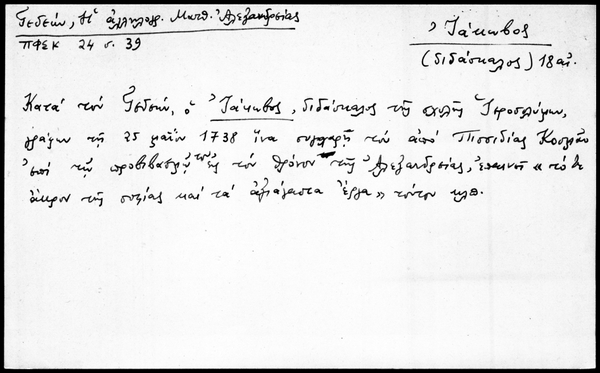 Γεδεών, Ἡ ἀλληλογρ. Ματθ. Ἀλεξανδρείας
ΠΦΣΚ 24 σ. 39
Ἰάκωβος
(διδάσκαλος) 18 αἰ.
Κατά τόν Γεδεών, ὁ Ἰάκωβος, διδάσκαλος τῆς σχολῆς Ἱεροσολύμων,
γράφων τῇ 25 μαΐου 1738 ἵνα συγχαρῇ τόν ἀπό Πισιδίας Κοσμᾶν
ἐπί τῇ προβιβάσει του εἰς τόν θρόνον τῆς Ἀλεξανδρείας, ἐπαινεῖ «τό
ἄκρον τῆς σοφίας καί τά ἀξιάγαστα ἔργα» τούτου κλπ.